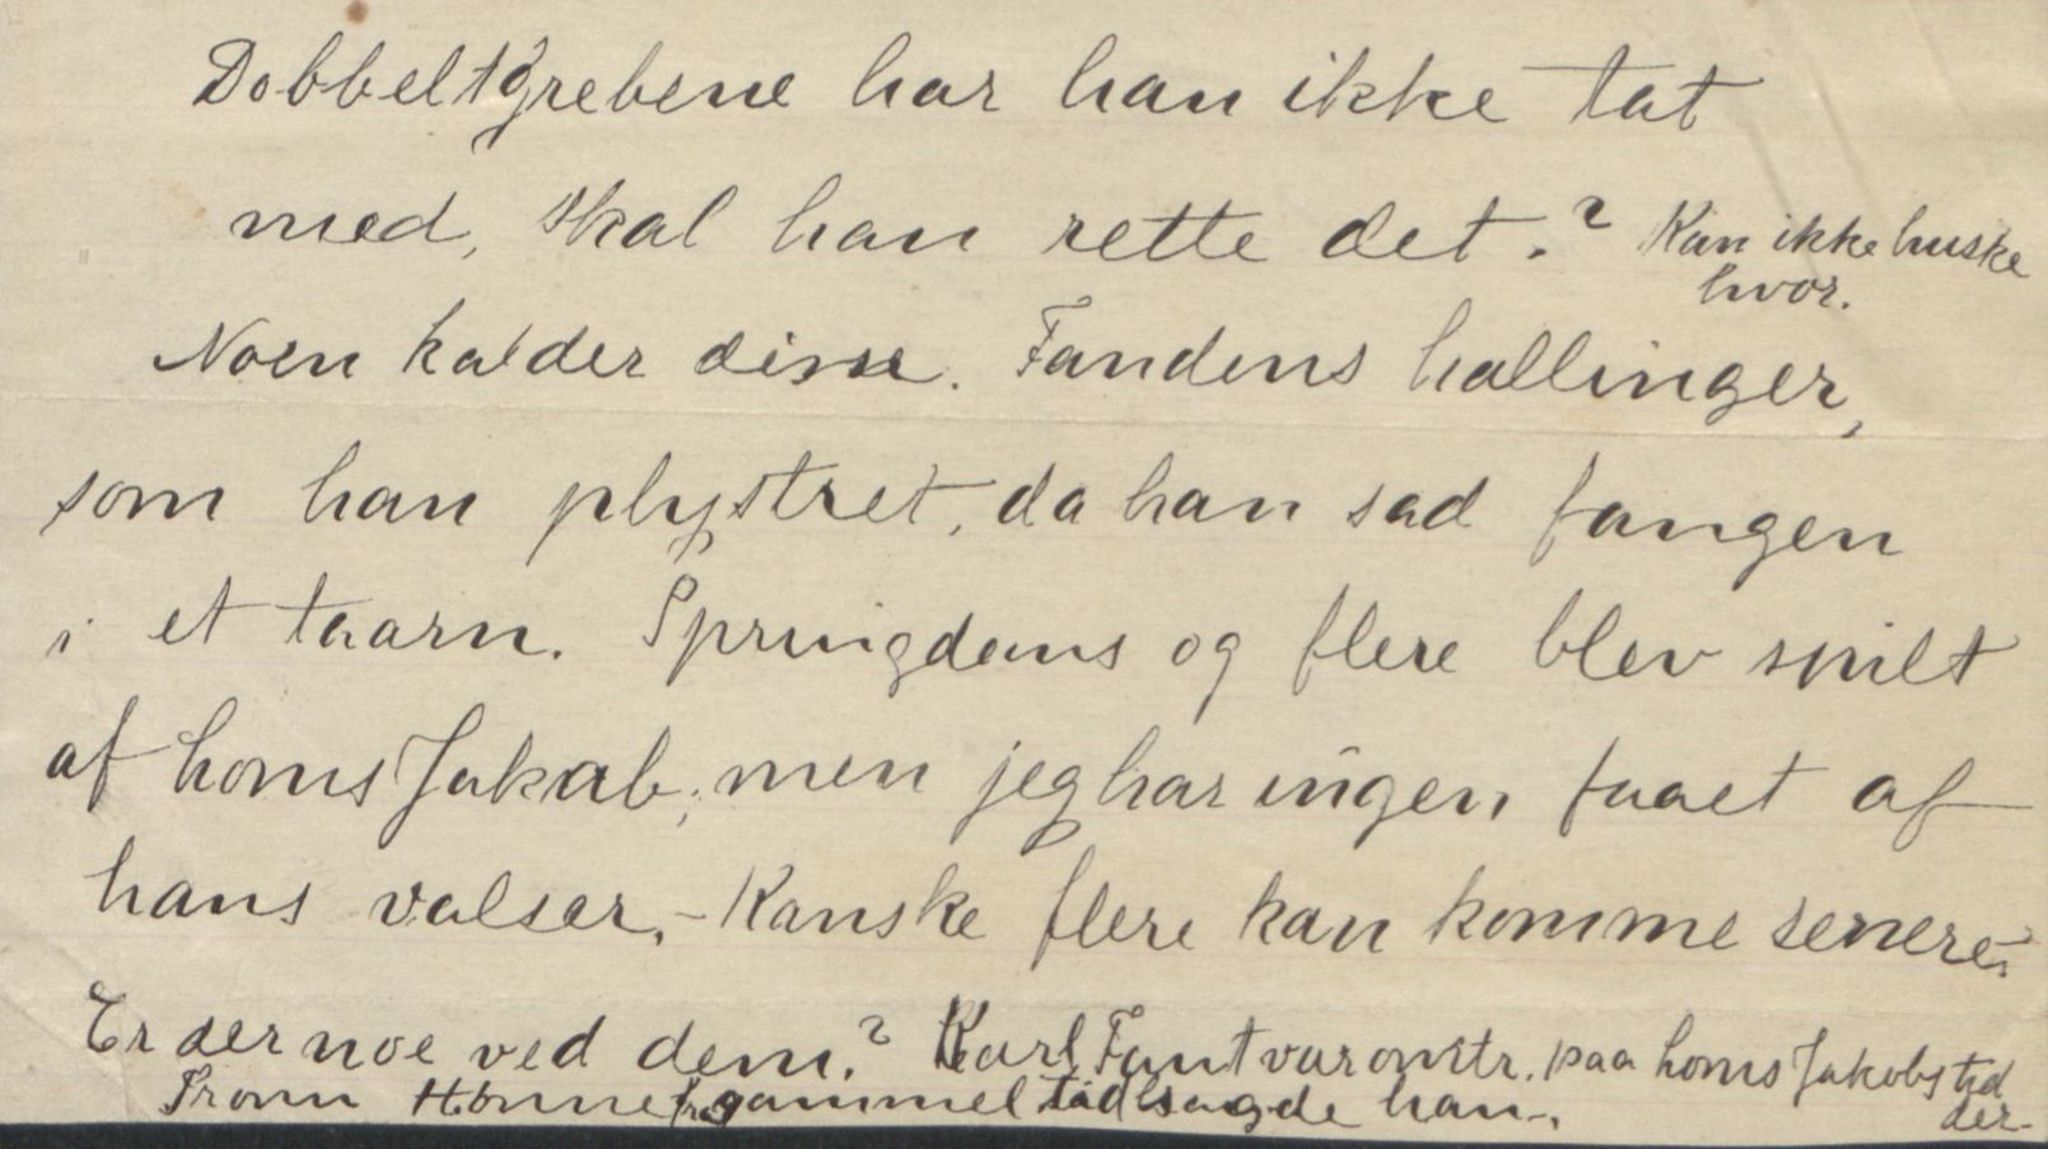 Dobbeltgrebene har han ikke tat
med, skal han rette det.? Kan ikke huske
hvor.
Noen kalder disse. Fandens hallinger,
som han plystret, da han sad fangen
i et taarn. Springdans og flere blev spilt
af Loms Jakob, men jeg har ingen faaet af
hans valser, - Kanske flere kan komme senere.
Er der noe ved dem.? Karl Fant var omstr. paa Loms Jakobs tid
der-
fra gammel tid sagde han.